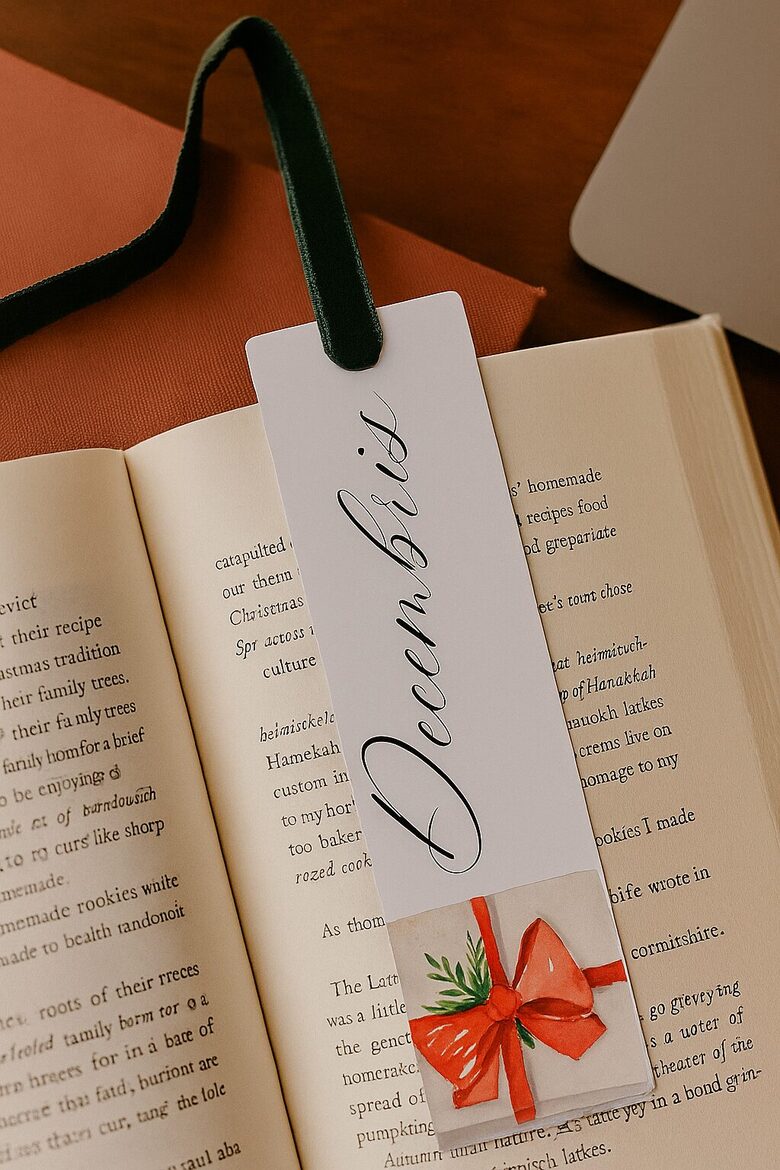 Decembris
evict
t their recipe
astmas tradition
heir family trees.
their fa mly trees
family hom for a brief
o be enjoying
of barndousich
curs like shorp
memade.
memade rookies white
made to bealth randonoit
roots of their rreces
family borm tor
for in a bace of
that fatd, buriont are
cur, tang the lole
saul aba
catapulted
our them
Christmas
Spr across
culture
Hamekah
custom in
to my hor
too baker
rozed cook
As thom
The Latt
was a little
the genct
homerake
spread of
pumpkting
Autumn
s' homemade
recipes food
od grepariate
et's tount chose
at heimituch-
p of Hanakkah
nauokh latkes
crems live on
homage to my
ookies I made
bife wrote in
cormitshire.
go grevey ing
s a uoter of
theater of the
tatte yey in a bond grin-
nature.
latkes.